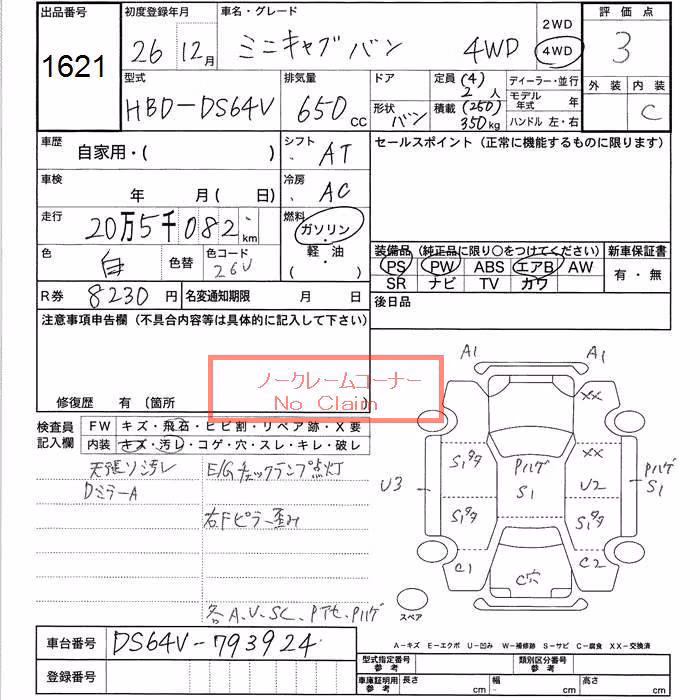 出品番号 初度登録年月 車名・グレード 2WD 評価点
1621 26 12月 ミニキャブバン 4WD 4WD 3
型式 排気量 ドア 定員 (4) 2人 ディーラー・並行 外装 内装
HBD-DS64V 650cc 形状 バン 積載 (250) 350kg モデル年式 年 C
ハンドル 左・右
車歴 自家用・( ) シフト AT セールスポイント(正常に機能するものに限ります)
車検 年 月(日) 冷房 AC
走行 20万5千082km 燃料 ガソリン・軽・油
( )
色 白 色替 色コード 26U 装備品(純正品に限り○をつけてください) 新車保証書
PS PW ABS エアB AW 有・無
SR ナビ TV カワ
R券 8230円 名変通知期限 月 日 後日品
注意事項申告欄(不具合内容等は具体的に記入して下さい)
ノークレームコーナー
No Claim
修復歴 有(箇所 )
検査員記入欄 FW キズ・飛石・ヒビ割・リペア跡・X要
内装 キズ・汚レ・コゲ・穴・スレ・キレ・破レ
天張リ汚レ E/Gチェックランプ点灯
DミラーA
右Fピラー歪み
各A.U.SC.Pアセ.Pハゲ
A1 A1
XX
S1タタ XX
U3 Pハゲ S1 U2 Pハゲ S1
S1タタ S1タタ
C1 C2
C穴
スペア
A-キズ E-エクボ U-凹み W-補修跡 S-サビ C-腐食 XX-交換済
車台番号 DS64V-793924
登録番号
型式指定番号参考 類別区分番号参考
車庫証明用参考 長さ cm 幅 cm 高さ cm